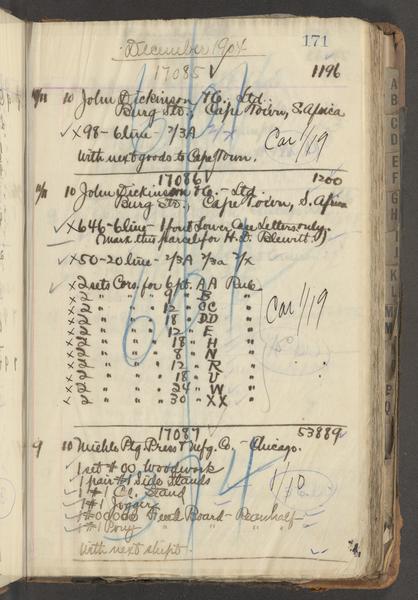 December 1904 171
17085 √ 1196
10 John Dickinson & Co. Ltd.
Burg St., Cape Town, S. Africa
√ X 98 - 6 line - 7/3A
With next goods to Cape Town.
Car 1/19
17086 √ 1200
10 John Dickinson & Co. - Ltd.
Burg St., Cape Town, S. Africa
√ X 646 - 6 line - 1 font Lower Case Letters only.
(Mark this parcel for H. D. Blewitt)
√ X 50 - 20 line - 7/3A 7/3a 7/X
√ X 2 sets Cors. for 6 pt. AA Rule
X 2 " " " 9 " B "
X 2 " " " 12 " CC "
X 2 " " " 18 " DD "
X 2 " " " 12 " E "
X 2 " " " 18 " H "
X 2 " " " 8 " N "
X 2 " " " 12 " R "
X 2 " " " 18 " U "
X 2 " " " 24 " W "
X 2 " " " 30 " XX "
Car 1/19
17087 53889
9 10 Miehle Ptg. Press & Mfg. Co. - Chicago.
1 set # 00 Woodwork
1 pair # 1 Side Stands
1 # 1 Cy. Stand
1 # 1 Jogger
1 # 0000 Feed Board -
1 # 1 Pony " "
With next shipt.
1/10
A
B
C
D
E
F
G
H
I
J
K
L
M